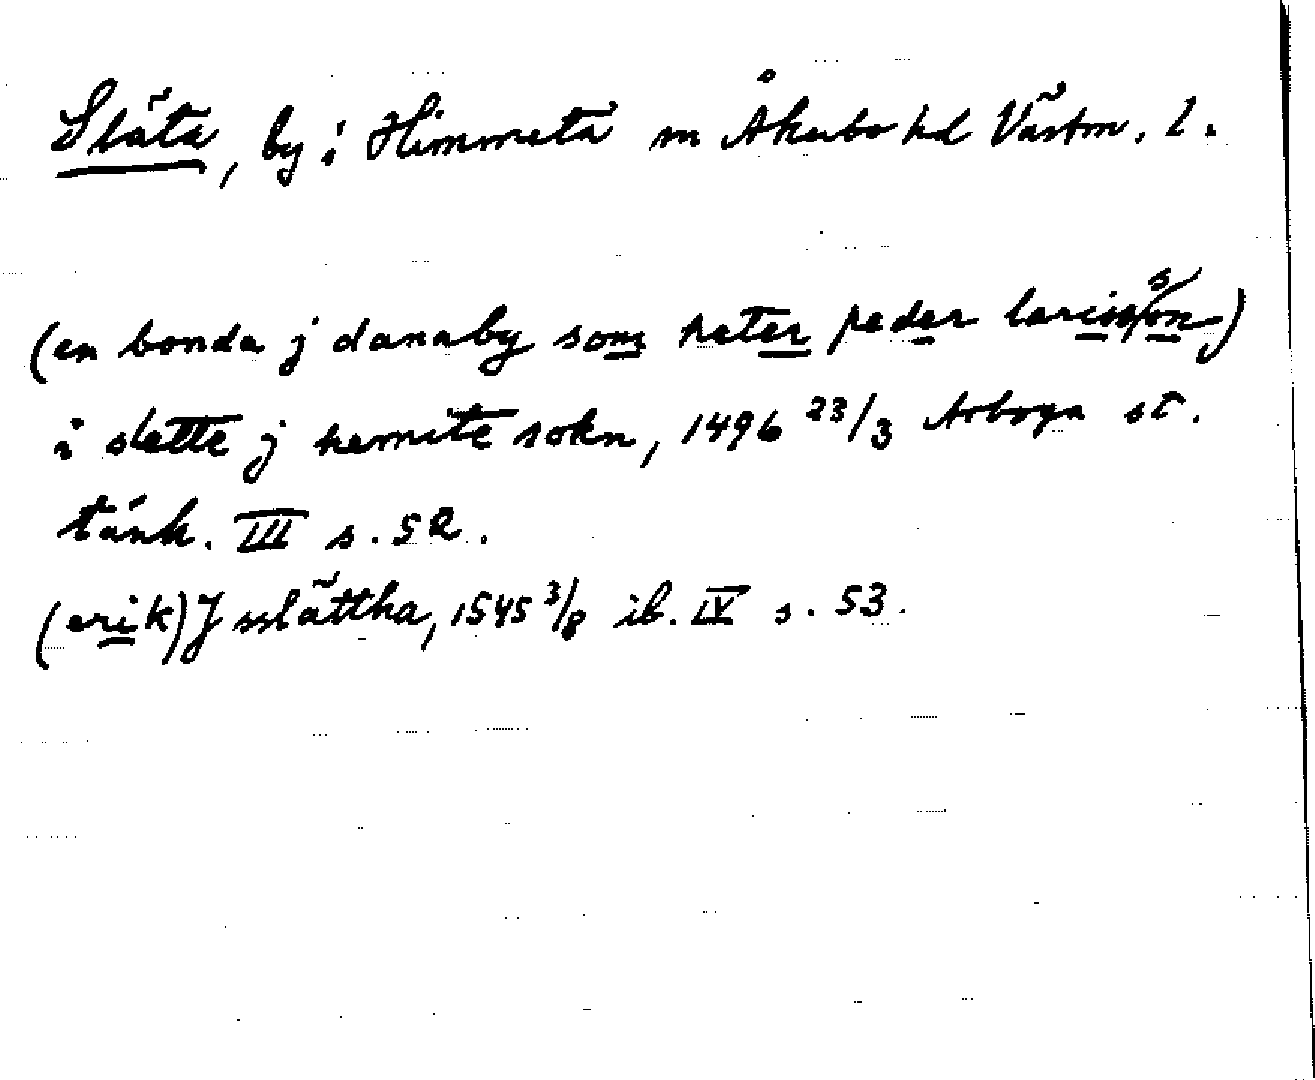 Släta, by i Himmeta sn Åkerbo hd Västm. l.
(en bonda j danaby som heter peder larisson)
i slette j hemite sokn, 1496 23/3 Arboga st.
tänk. III s. 52.
(erik) J sslättha, 1545 3/8 ib. IV s. 53.